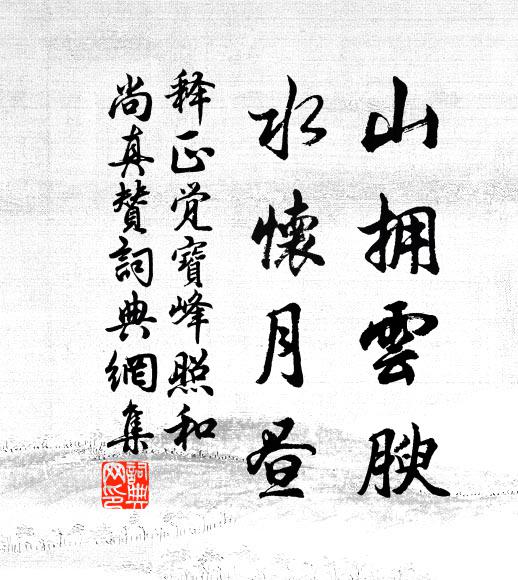 山拥雲腴
水懷月昼
释正觉寶峰照和
尚真賛詞典網集
詞典网印